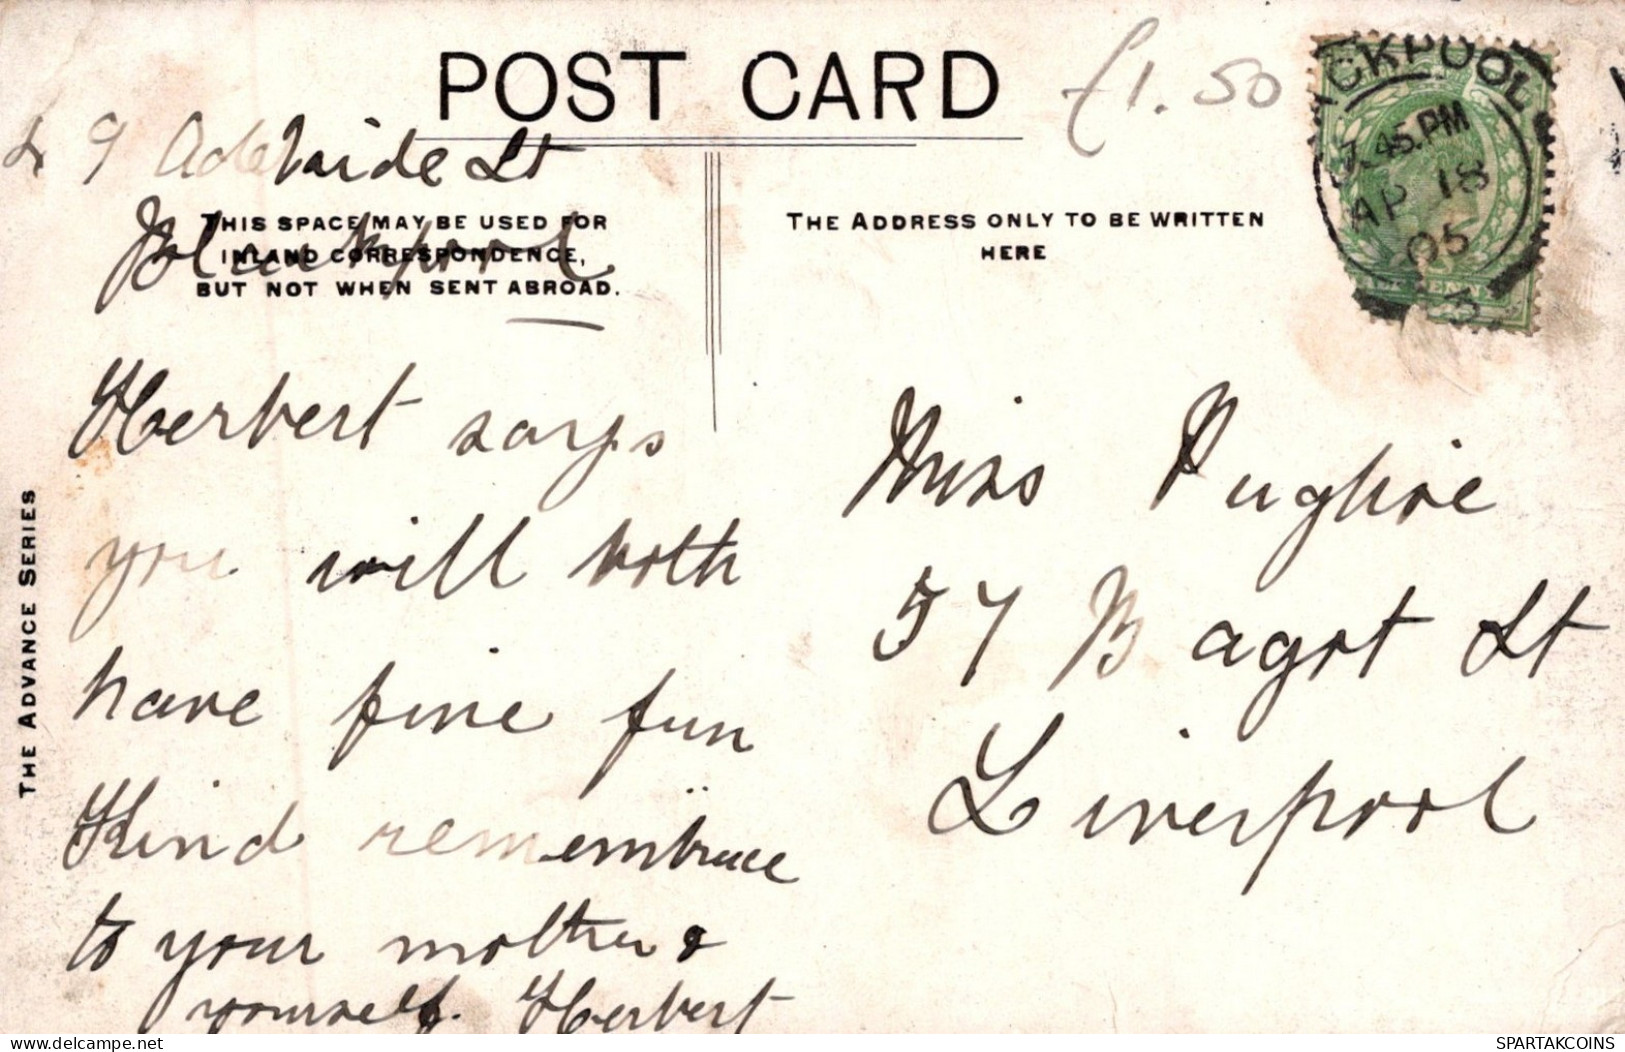 POST CARD
£1.50
49 Adelaide St
Blackpool
THIS SPACE MAY BE USED FOR
INLAND CORRESPONDENCE,
BUT NOT WHEN SENT ABROAD.
THE ADDRESS ONLY TO BE WRITTEN
HERE
CKPOOL
7.45.PM
AP 18
05
3
Herbert says
you will both
have fine fun
Kind
to your mother &
yourself. Herbert
Miss Pughie
57 Bagot St
Liverpool
THE ADVANCE SERIES
delcampe.net
SPARTAKCOINS